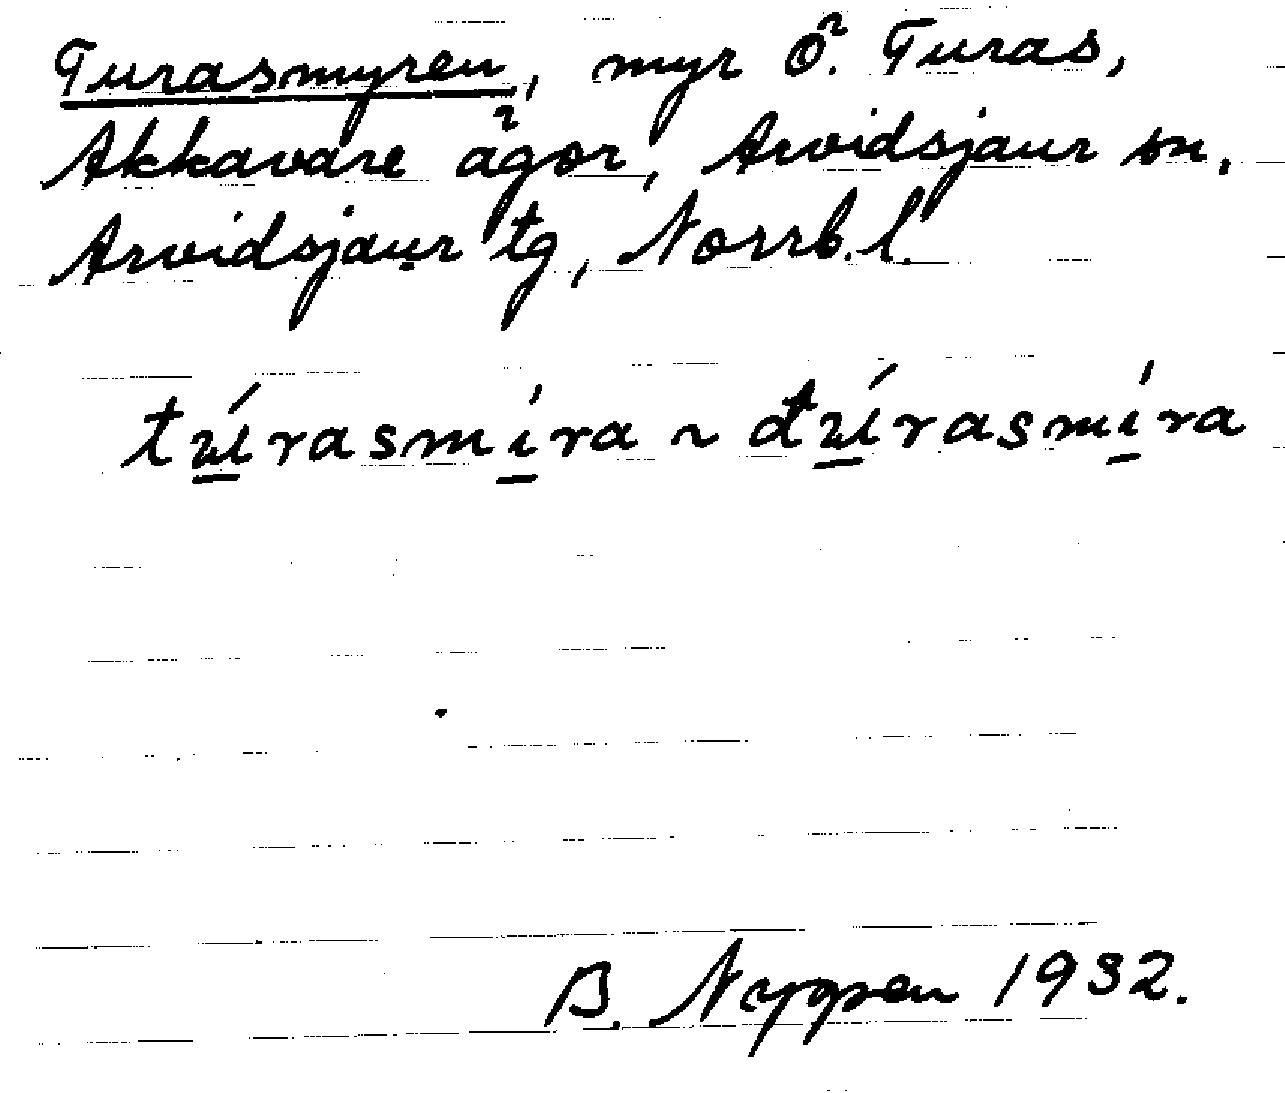 Turasmyren, myr Ö. Turas,
Akkavare ägor, Arvidsjaur sn,
Arvidsjaur tg, Norrb. l.
tú̲rasmí̲ra ~ đú̲rasmí̲ra
B. Nygren 1932.